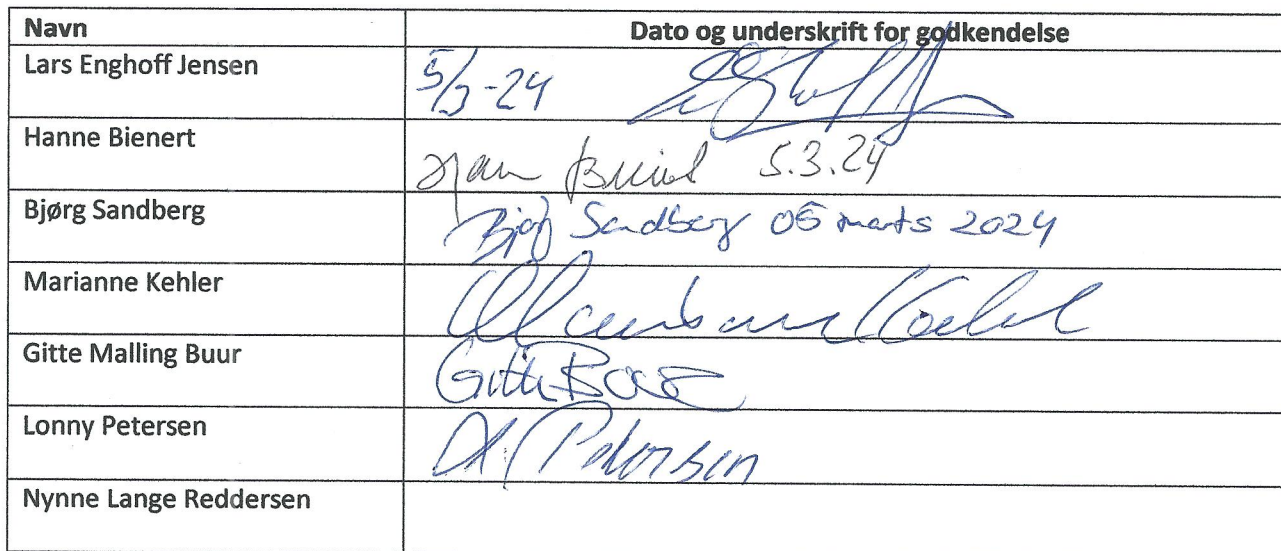 Navn Dato og underskrift for godkendelse
Lars Enghoff Jensen 5/3-24
Hanne Bienert 5.3.24
Bjørg Sandberg Bjørg Sandberg 05 marts 2024
Marianne Kehler
Gitte Malling Buur Gitte Buur
Lonny Petersen Petersen
Nynne Lange Reddersen